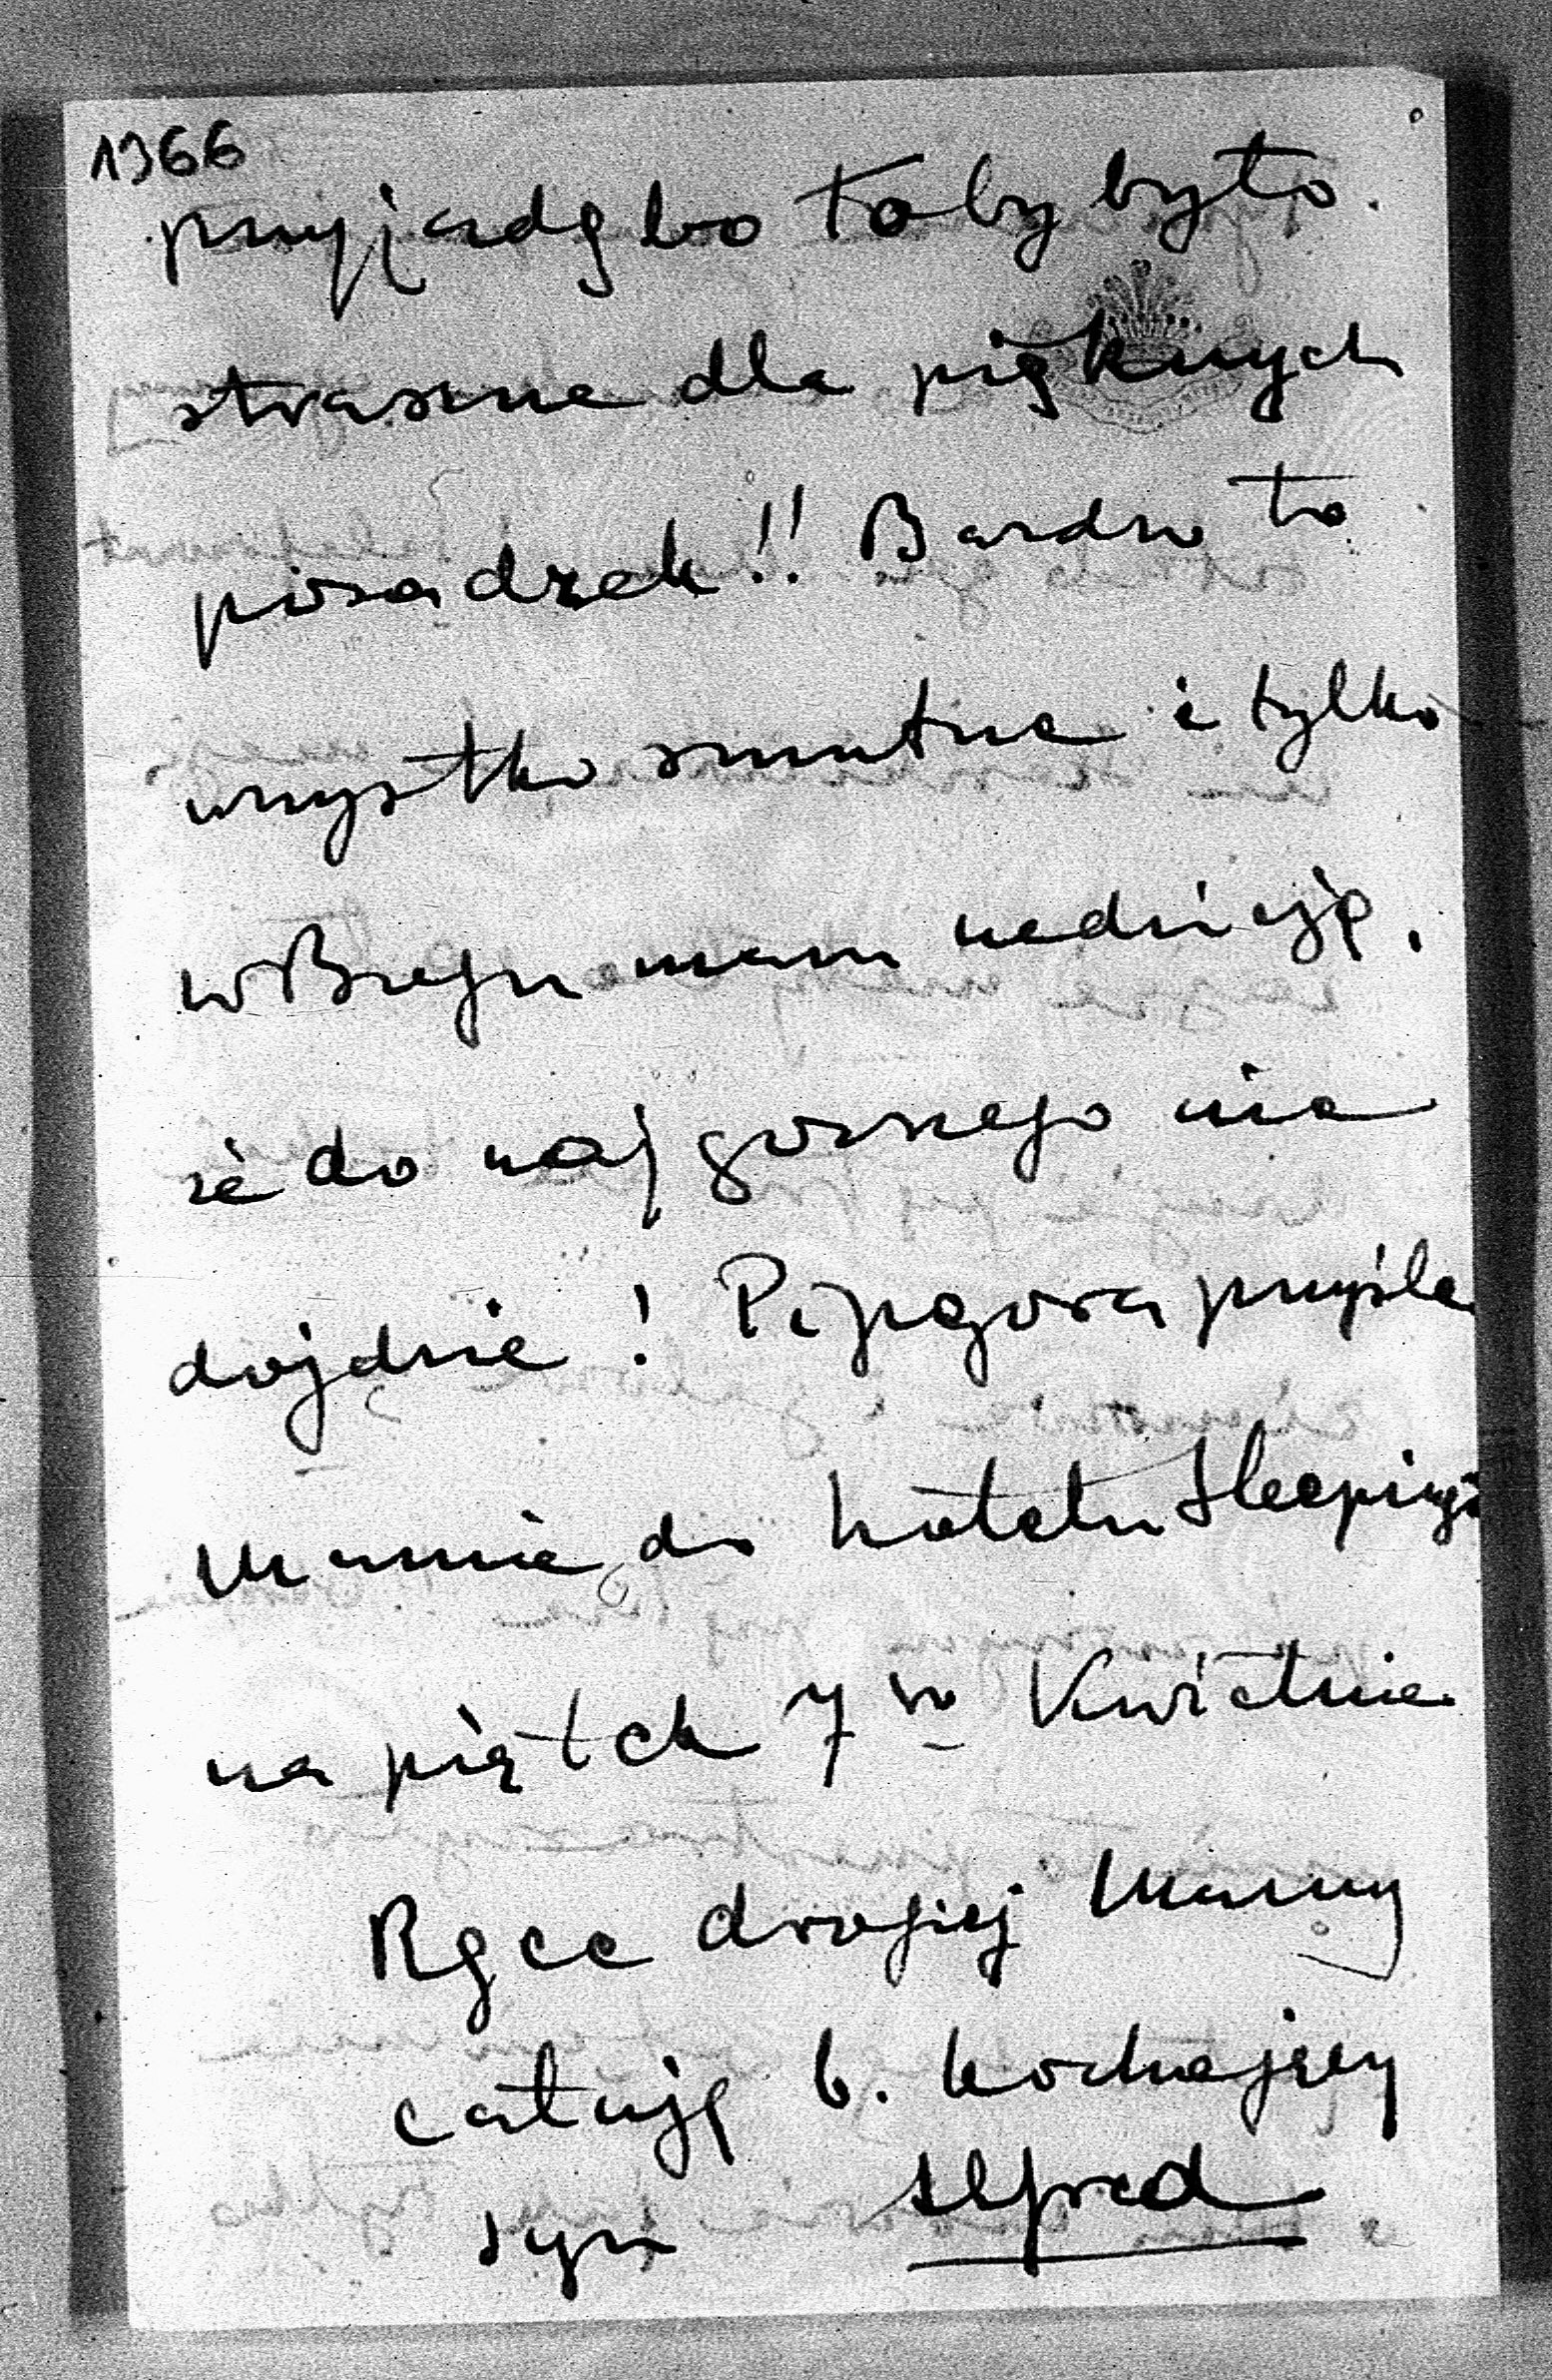 1366
przyjadę bo to by było
straszne dla pięknych
posadzek!! Bardzo to
wszystko smutne i tylko
w Bogu mam nadzieję,
że do najgorszego nie
dojdzie! Pipegora przyśle
Mamie do hotelu Sleepingi
na piątek 7go Kwietnia
Ręce drogiej Mamy
całuję b. kochający
syn Alfred